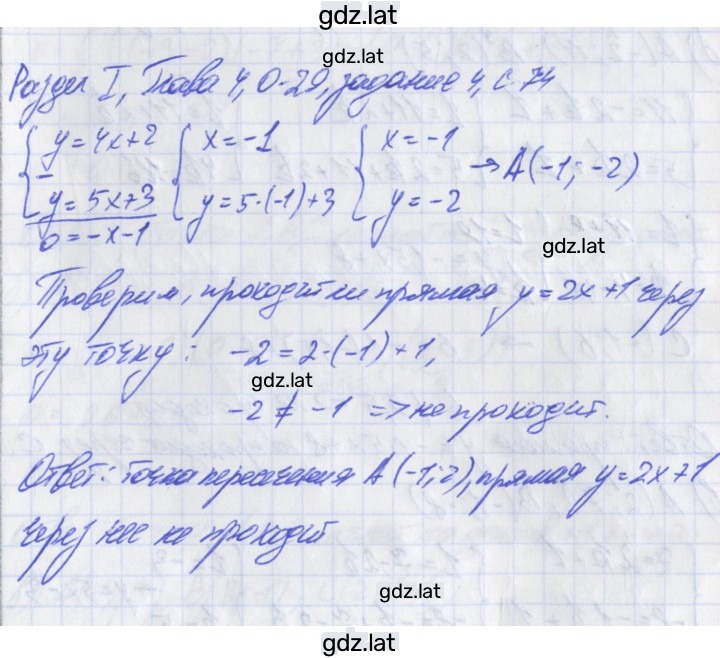 gdz.lat
gdz.lat
Раздел I, Глава 4, О-29, задание 4, с. 74
{ y = 4x+2 { x = -1 { x = -1
– → A(-1; -2)
y = 5x+3 y = 5·(-1)+3 y = -2
0 = -x-1
gdz.lat
Проверим, проходит ли прямая y = 2x+1 через
эту точку: -2 = 2·(-1)+1,
gdz.lat
-2 ≠ -1 => не проходит.
Ответ: точка пересечения A(-1; 2), прямая y = 2x+1
через нее не проходит
gdz.lat
gdz.lat